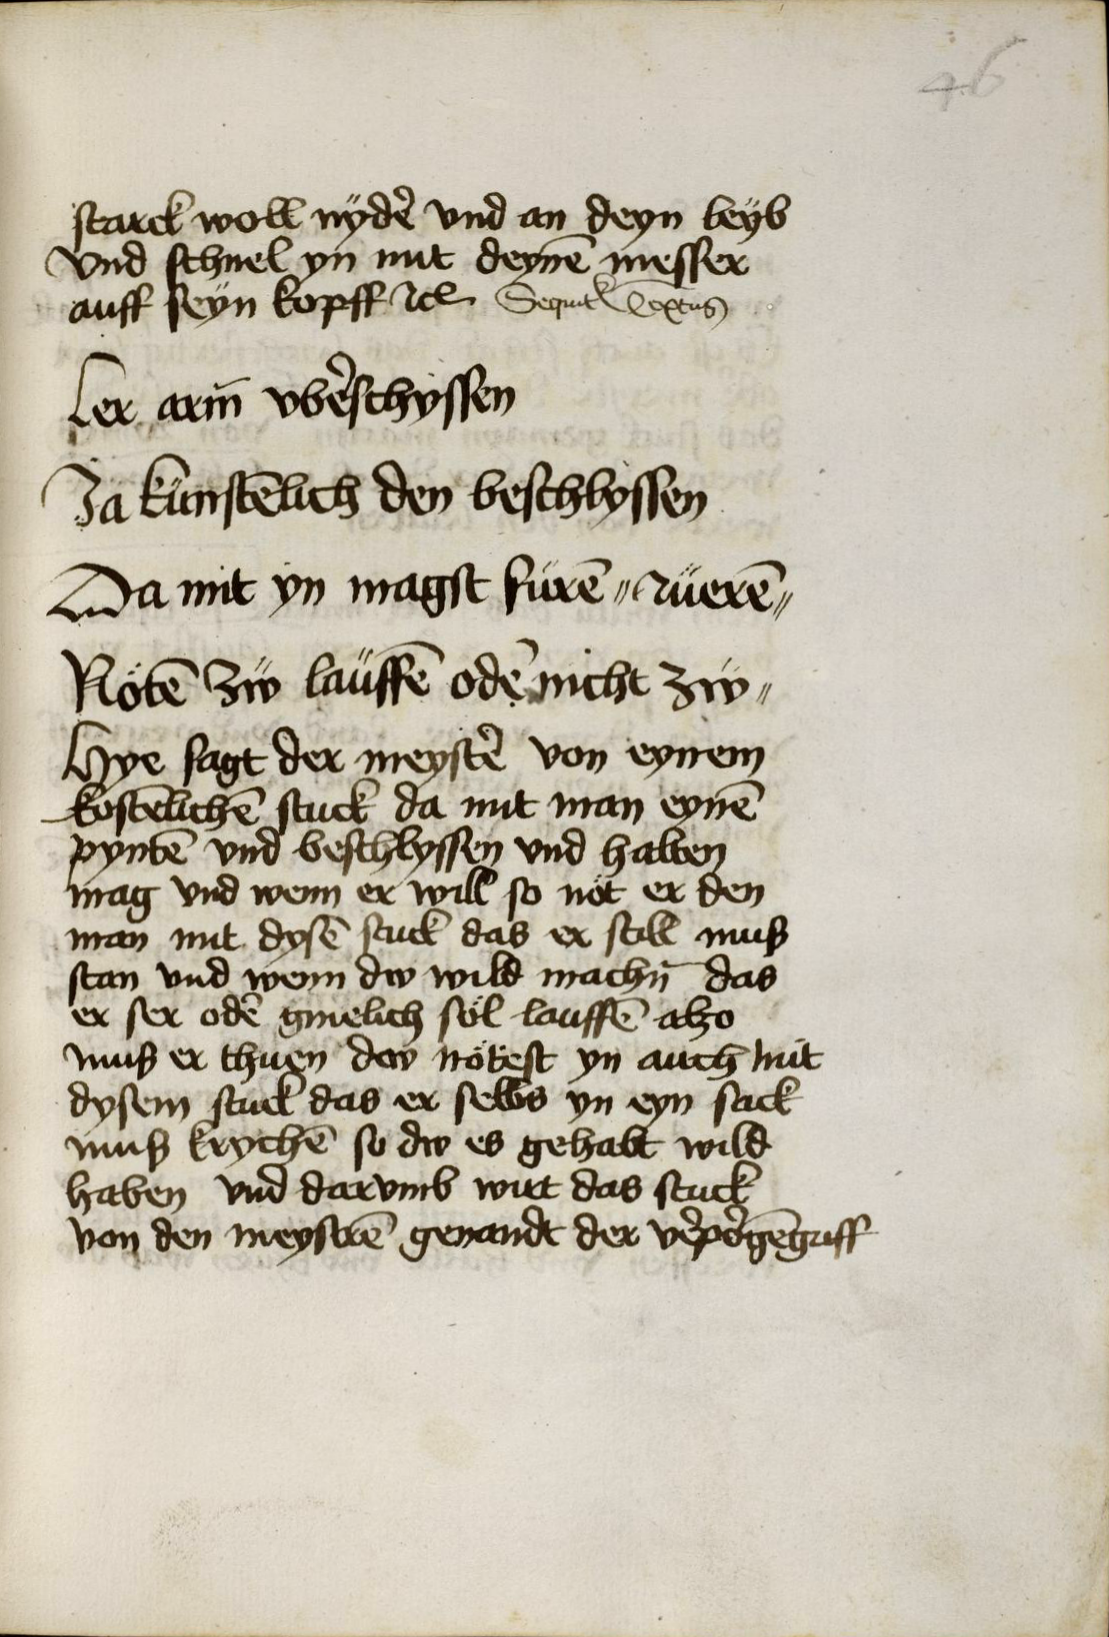 46
starck woll nÿdē vnd an deyn leÿb
vnd schnel yn mit deynē messer
auff seÿn kopff ꝛcꝭ Sequitꝛ Textus
Ler arm̄ vbe᷑schyssen
Ja kunstēlich den beschlyssen
Da mit yn magst fürē〃 rüerē〃
Nötē zẅ laüffē ode᷑ nicht zẅ〃
Hye sagt der meyste᷑ von eynem
kostēlichē stuck da mit man eynē
pyntē vnd beschlyssen vnd halten
mag vnd wenn er will so nöt er den
man mit dysē stuck das er still muß
stan vnd wenn dw wild machn̄ das
er ser ode᷑ gmelich söl lauffē alzo
muß er thuen dw nötest yn auch mit
dysem stuck das er selbs yn eyn sack
muß krychē so dw es gehabt wild
haben vnd darvmb wirt das stuck
von den meystrē genandt der ve᷑po᷑gēgriff